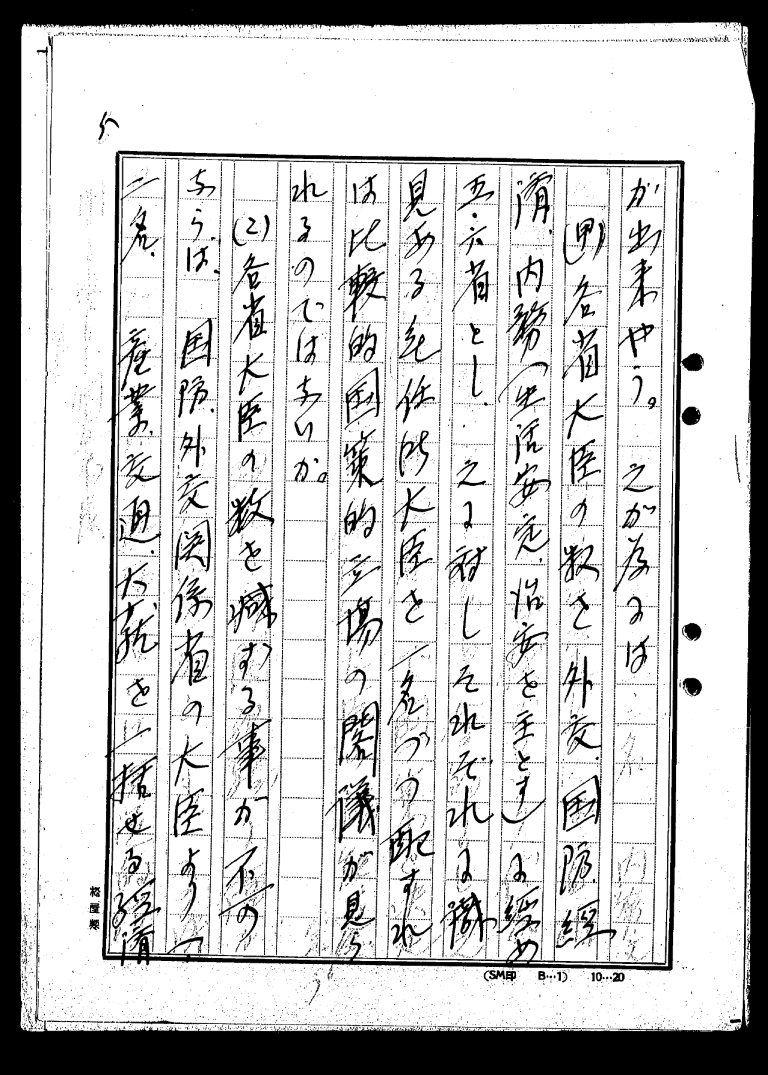 5
が出来やう。 之が為には
(甲)各省大臣の数を外交、国防、経
済、内務(生活安定、治安を主とす)に纏め
五・六省とし、之に対しそれぞれに識
見ある無任所大臣を一名づつ配すれ
ば比較的国策的立場の閣議が見ら
れるのではないか。
(乙)各省大臣の数を減ずる事が不可
ならば、国防、外交関係省の大臣より一
二名、産業、交通、大蔵を一括せる経済
(SM印 B…1) 10…20